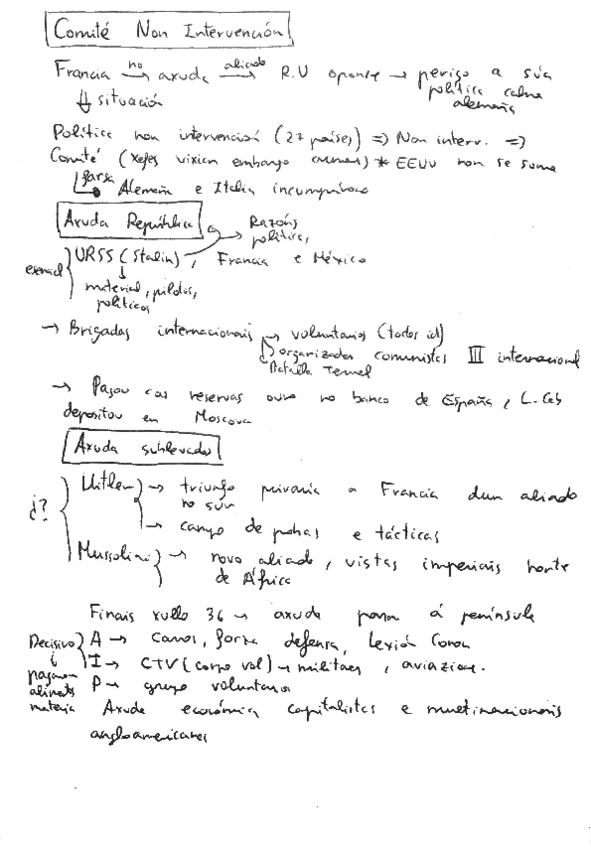 Comité Non Intervención
Francia no → axuda aliado → R.U oponse → perigo a súa
política calma
alemaña
⇓ situación
Política non intervención (27 países) ⇒ Non interv. ⇒
Comité (xefes vixían embargo armas) * EEUU non se suma
farsa
Alemaña e Italia incumpriron
Axuda República
Razóns
políticas
esencial URSS (Stalin), Francia e México
material, pilotos,
políticos
→ Brigadas internacionais → voluntarios (todos id)
organizadas comunistas III internacional
Batalla Teruel
→ Pagou cas reservas ouro no banco de España, L. Cab
depositou en Moscova
Axuda sublevados
¿? Hitler → triunfo privaría a Francia dun aliado
no sur
→ campo de probas e tácticas
Mussolini → novo aliado, vistas imperiais norte
de África
Finais xullo 36 → axuda para á península
Decisivo A → Canos, forza defensa, Lexión Condor
I → CTV (corpo vol) → militares, aviazione.
pagaron
alimentos P → grupo voluntarios
materia Axuda económica capitalistas e multinacionais
angloamericanas